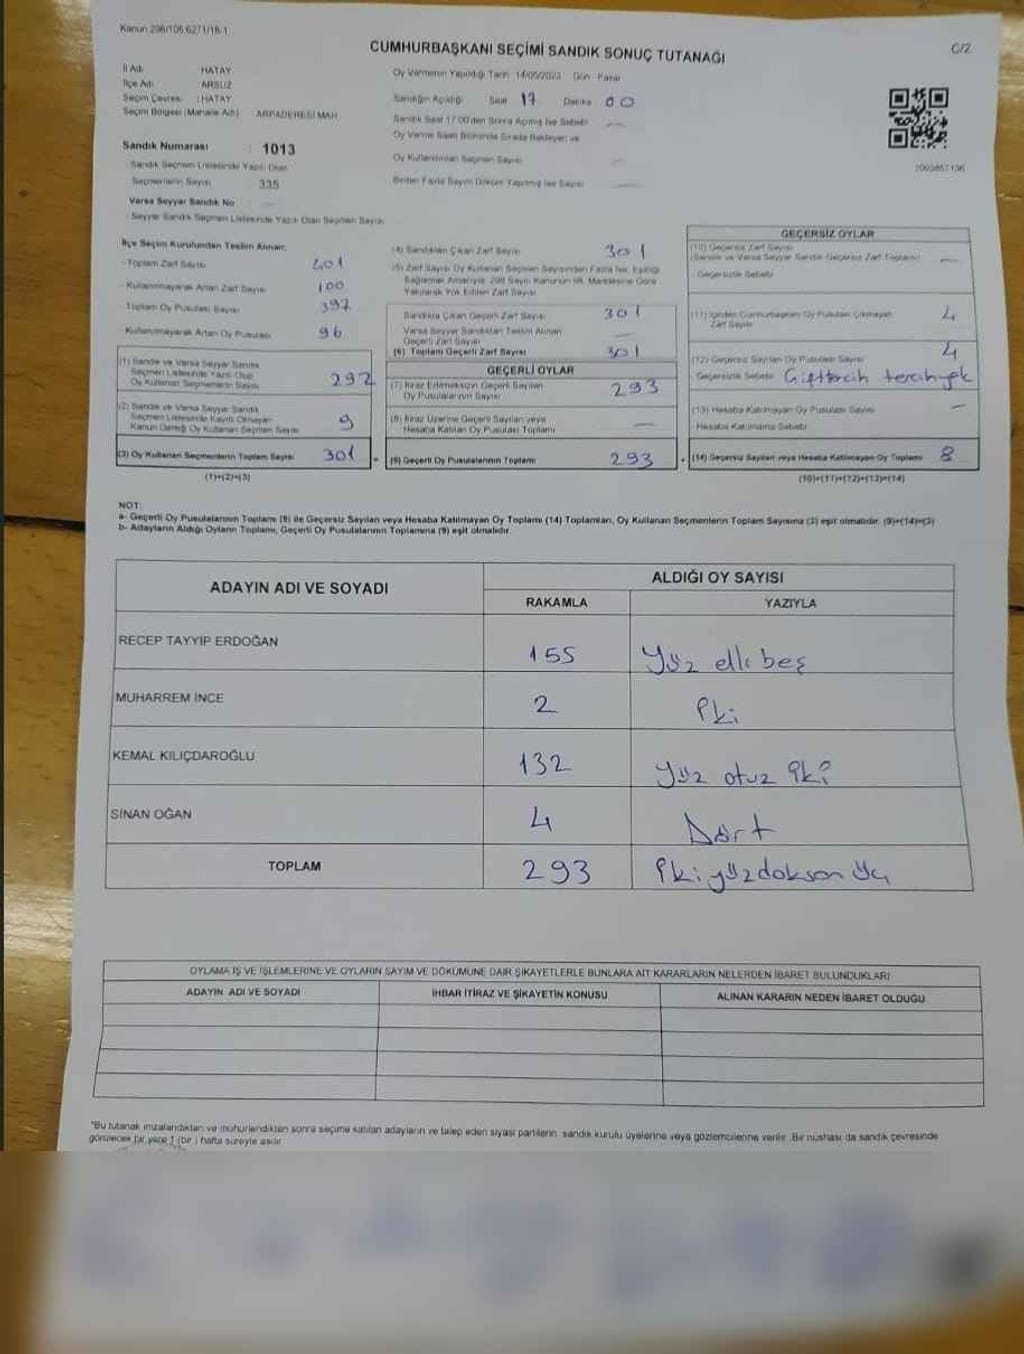 Kanun 298/106;6271/18-1
C/2
CUMHURBAŞKANI SEÇİMİ SANDIK SONUÇ TUTANAĞI
İl Adı HATAY
İlçe Adı ARSUZ
Seçim Çevresi : HATAY
Seçim Bölgesi (Mahalle Adı) ARPADERESİ MAH.
Oy Vermenin Yapıldığı Tarih 14/05/2023 Gün Pazar
Sandığın Açıldığı Saat 17 Dakika 00
Sandık Saat 17:00'den Sonra Açılmış İse Sebebi —
Oy Verme Saati Bitiminde Sırada Bekleyen ve
Oy Kullandırılan Seçmen Sayısı —
Birden Fazla Sayım Döküm Yapılmış İse Sayısı —
Sandık Numarası : 1013
Sandık Seçmen Listesinde Yazılı Olan
Seçmenlerin Sayısı 335
Varsa Seyyar Sandık No
Seyyar Sandık Seçmen Listesinde Yazılı Olan Seçmen Sayısı
İlçe Seçim Kurulundan Teslim Alınan;
- Toplam Zarf Sayısı 401
- Kullanılmayarak Artan Zarf Sayısı 100
- Toplam Oy Pusulası Sayısı 397
- Kullanılmayarak Artan Oy Pusulası 96
(1) Sandık ve Varsa Seyyar Sandık
Seçmen Listesinde Yazılı Olup
Oy Kullanan Seçmenlerin Sayısı 292
(2) Sandık ve Varsa Seyyar Sandık
Seçmen Listesinde Kayıtlı Olmayan
Kanun Gereği Oy Kullanan Seçmen Sayısı 9
(3) Oy Kullanan Seçmenlerin Toplam Sayısı 301
(1)+(2)=(3)
(4) Sandıktan Çıkan Zarf Sayısı 301
(5) Zarf Sayısı Oy Kullanan Seçmen Sayısından Fazla İse, Eşitliği
Sağlamak Amacıyla; 298 Sayılı Kanunun 98. Maddesine Göre
Yakılarak Yok Edilen Zarf Sayısı
Sandıkta Çıkan Geçerli Zarf Sayısı 301
Varsa Seyyar Sandıktan Teslim Alınan
Geçerli Zarf Sayısı —
(6) Toplam Geçerli Zarf Sayısı 301
GEÇERLİ OYLAR
(7) İtiraz Edilmeksizin Geçerli Sayılan
Oy Pusulalarının Sayısı 293
(8) İtiraz Üzerine Geçerli Sayılan veya
Hesaba Katılan Oy Pusulası Toplamı —
(9) Geçerli Oy Pusulalarının Toplamı 293
GEÇERSİZ OYLAR
(10) Geçersiz Zarf Sayısı
(Sandık ve Varsa Seyyar Sandık Geçersiz Zarf Toplamı) —
- Geçersizlik Sebebi
(11) İçinden Cumhurbaşkanı Oy Pusulası Çıkmayan
Zarf Sayısı 4
(12) Geçersiz Sayılan Oy Pusulası Sayısı 4
- Geçersizlik Sebebi Çifttercih tercihyok
(13) Hesaba Katılmayan Oy Pusulası Sayısı —
- Hesaba Katılmama Sebebi
(14) Geçersiz Sayılan veya Hesaba Katılmayan Oy Toplamı 8
(10)+(11)+(12)+(13)=(14)
NOT:
a- Geçerli Oy Pusulalarının Toplamı (9) ile Geçersiz Sayılan veya Hesaba Katılmayan Oy Toplamı (14) Toplamları, Oy Kullanan Seçmenlerin Toplam Sayısına (3) eşit olmalıdır. (9)+(14)=(3)
b- Adayların Aldığı Oyların Toplamı, Geçerli Oy Pusulalarının Toplamına (9) eşit olmalıdır.
ADAYIN ADI VE SOYADI
ALDIĞI OY SAYISI
RAKAMLA YAZIYLA
RECEP TAYYIP ERDOĞAN 155 Yüz elli beş
MUHARREM İNCE 2 İki
KEMAL KILIÇDAROĞLU 132 Yüz otuz iki
SİNAN OĞAN 4 Dört
TOPLAM 293 İki yüz doksan üç
OYLAMA İŞ VE İŞLEMLERİNE VE OYLARIN SAYIM VE DÖKÜMÜNE DAİR ŞİKAYETLERLE BUNLARA AİT KARARLARIN NELERDEN İBARET BULUNDUKLARI
ADAYIN ADI VE SOYADI İHBAR İTİRAZ VE ŞİKAYETİN KONUSU ALINAN KARARIN NEDEN İBARET OLDUĞU
*Bu tutanak imzalandıktan ve mühürlendikten sonra seçime katılan adayların ve talep eden siyasi partilerin sandık kurulu üyelerine veya gözlemcilerine verilir. Bir nüshası da sandık çevresinde
görülecek bir yere 1 (bir) hafta süreyle asılır